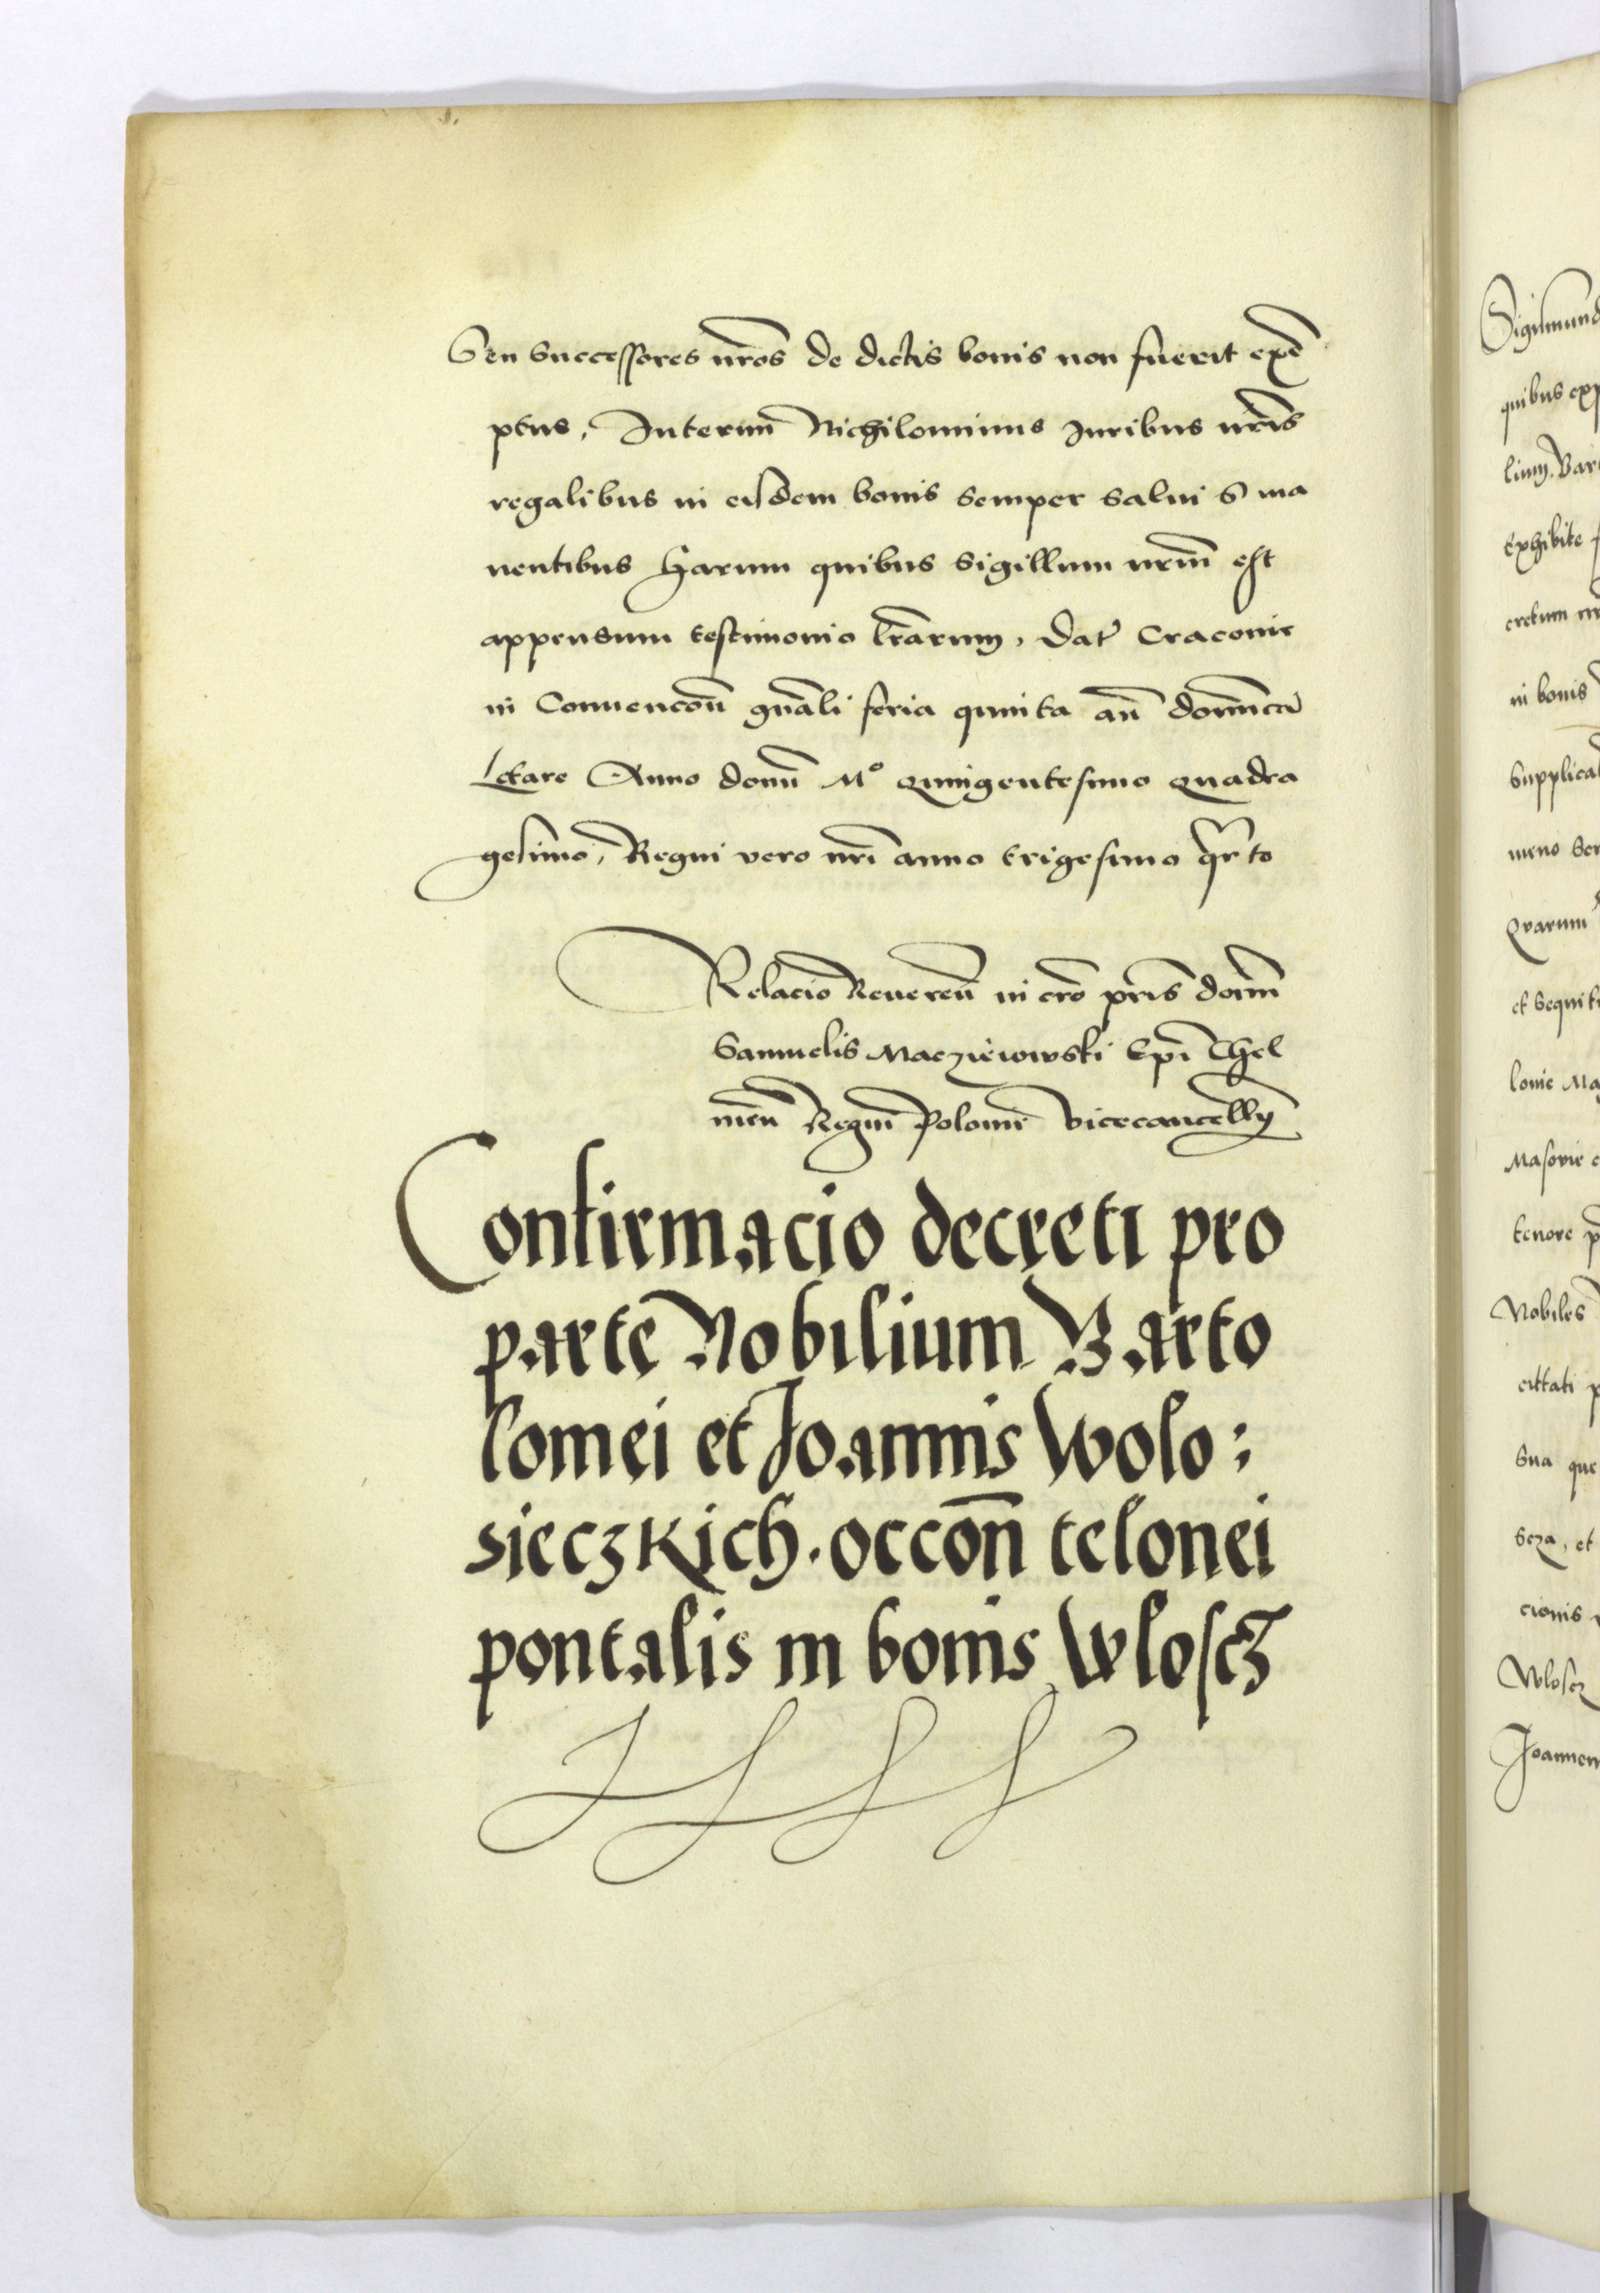 Seu Successores nr̃os de dictis bonis non fuerit exẽ
ptus, Interim̃ Nichilominus Juribus nr̃is
regalibus in eisdem bonis semper salui s ma
nentibus harum quibus sigillum nrm̃ est
appensum testimonio lr̃arum, Dat̃ Cracouie
in Conuencõn gñali feria quinta añ domĩca
Letare Anno domĩ Mº quingentesimo quadra
gesimo, Regni vero nr̃i anno trigesimo qr̃to
Relacio Reuereñ in cr̃o pr̃is domĩ
Samuelis Macziewowski Ep̃i Chel
meñ Regni Polonie Vicecancellỹ
Confirmacio decreti pro
parte Nobilium Barto
lomei et Joannis Wolo:
sieczkich. occõn telonei
pontalis in bonis Wloscz
Sigismund
quibus exp
lium. Bar
Exhibite
cretum
in bonis
Supplicat
meno Ser
Quarum
et sequit
lonie Ma
Masovie
tenore p
Nobiles
cittati p
Sua que
Scza, et
cionis
Wloscz
Joannem